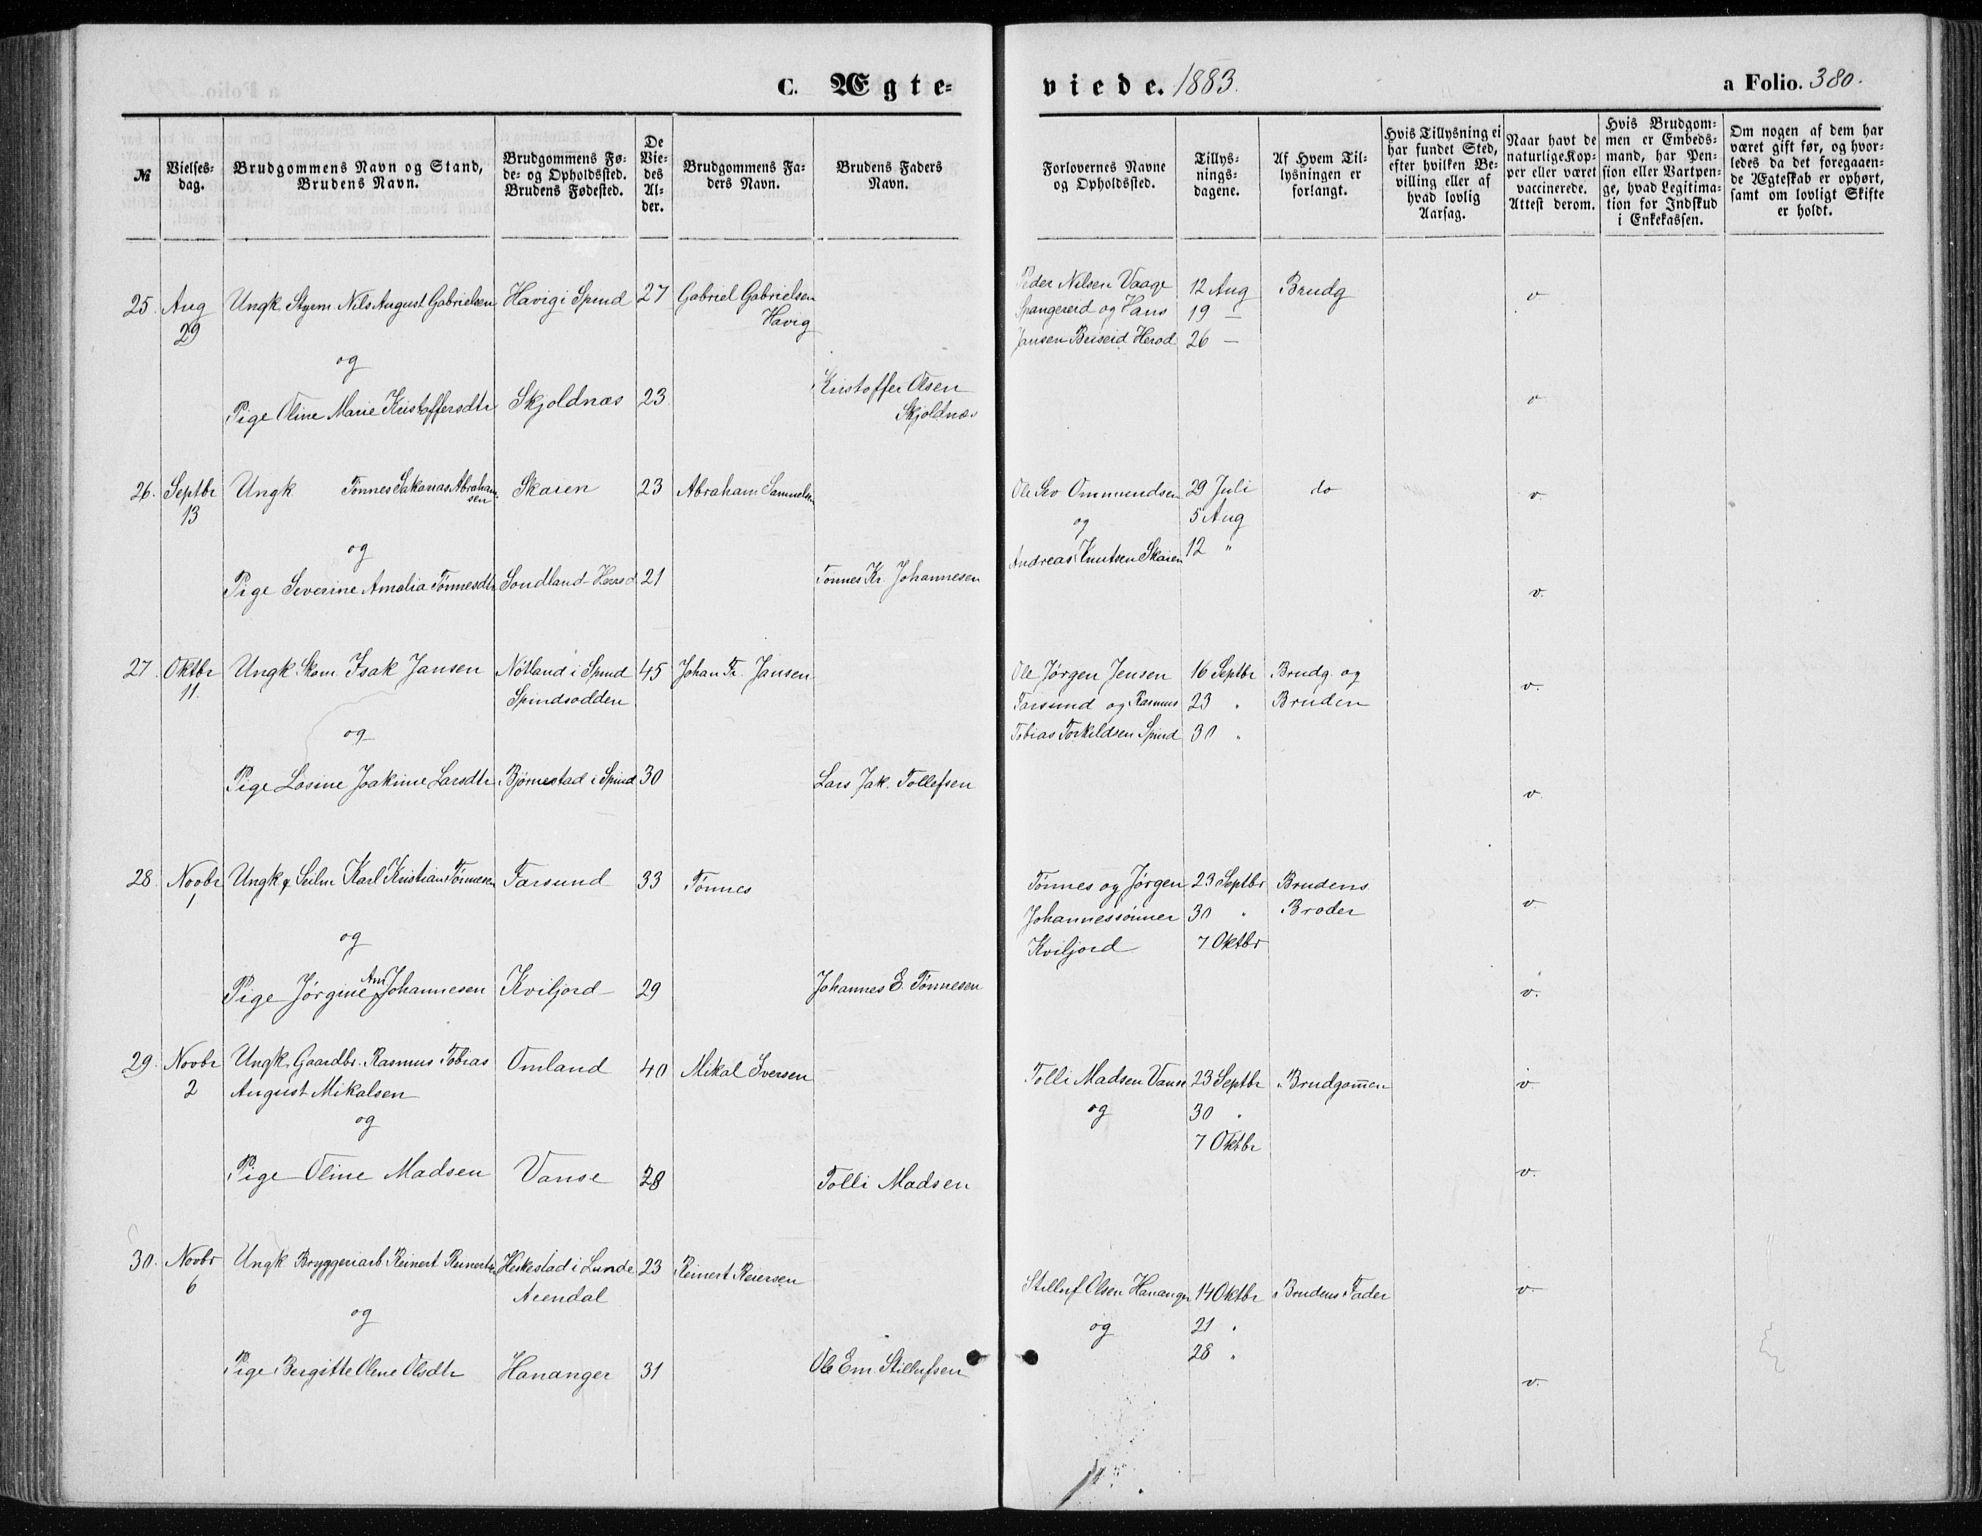 C. Ægte-
viede. 1883.
a Folio. 380.
№
Vielses-
dag.
Brudgommens Navn og Stand,
Brudens Navn.
Brudgommens Fø-
de- og Opholdssted.
Brudens Fødested.
De
Vie-
des
Al-
der.
Brudgommens Fa-
ders Navn.
Brudens Faders
Navn.
Forlovernes Navne
og Opholdssted.
Tillys-
nings-
dagene.
Af Hvem Til-
lysningen er
forlangt.
Hvis Tillysning ei
har fundet Sted,
efter hvilken Be-
villing eller af
hvad lovlig
Aarsag.
Naar havt de
naturlige Kop-
per eller været
vaccinerede.
Attest derom.
Hvis Brudgom-
men er Embeds-
mand, har Pen-
sion eller Vartpen-
ge, hvad Legitima-
tion for Indskud
i Enkekassen.
Om nogen af dem har
været gift før, og hvor-
ledes da det foregaaen-
de Ægteskab er ophørt,
samt om lovligt Skifte
er holdt.
25. Aug Ungk. Styrm. Nils August Gabrielsen Havig i Spind 27 Gabriel Gabrielsen
29 Havig
og
Pige Oline Marie Kristoffersdtr Skjoldnæs 23 Kristoffer Olsen
Skjoldnæs
Peder Nilsen Vaage 12 Aug Brudg v
Spangereid og Hans 19 —
Jansen Briseid Herod 26 —
v
26. Septbr Ungk Tønnes Sakarias Abraham- Skaien 23 Abraham Samuelsen
sen
13
og
Pige Severine Amalia Tønnesdtr Sondland Herred 21 Tønnes Kr. Johannesen
Ole Sev Ommundsen 29 Juli do v.
og 5 Aug
Andreas Knutsen Skaien 12 "
v.
27. Oktbr Ungk. Skom. Isak Jansen Nøtland i Spind 45 Johan Fr. Jansen
11. Spindsodden
og
Pige Losine Joakime Larsdtr Bjørnestad i Spind 30 Lars Jak. Tollefsen
Ole Jørgen Jensen 16 Septbr Brudg. og v.
Farsund og Rasmus 23 " Bruden
Tobias Torkildsen Spind 30 "
v.
28. Novbr Ungk & Seilm Karl Kristian Tønnesen Farsund 33 Tønnes
1
og
Am
Pige Jørgine Johannesen Kviljord 29 Johannes E. Tønnesen
Tønnes og Jørgen 23 Septbr Brudens v.
Johannessønner 30 " Broder
Kviljord 7 Oktbr
v.
29. Novbr Ungk. Gaardbr. Rasmus Tobias Omland 40 Mikal Iversen
2 August Mikalsen
og
Pige Oline Madsen Vanse 28 Tolli Madsen
Tolli Madsen Vanse 23 Septbr Brudgommen v
og 30 "
7 Oktbr
v.
30. Novbr Ungk Bryggeriarb. Reinert Reinertsen Heskestad i Lunde 23 Reinert Reiersen
6 Arendal
og
Pige Bergitte Olene Olsdtr Hananger 31 Ole Em. Stillufsen
Stilluf Olsen Hananger 14 Oktbr Brudens Fader v.
og 21 "
28 "
v.